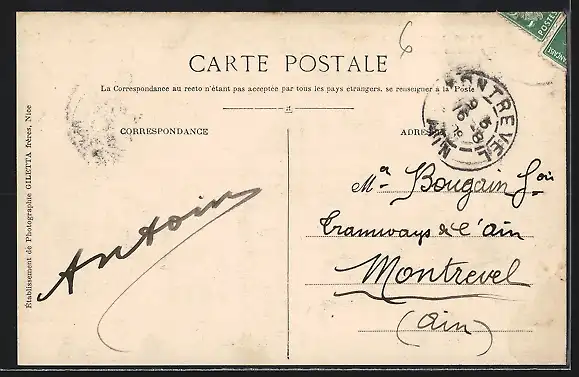 CARTE POSTALE
La Correspondance au recto n'étant pas acceptée par tous les pays étrangers, se renseigner à la Poste
CORRESPONDANCE
ADRESSE
MONTREVEL
AIN
6
Antoin
Mr Bougain
Tramways de l'ain
Montrevel
(Ain)
Établissement de Photographie GILETTA frères, Nice
POSTES